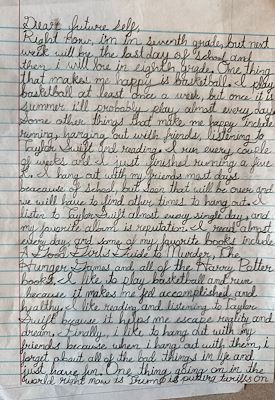 Dear future self,
Right now, i'm in seventh grade, but next
week will be the last day of school and
then i will be in eighth grade. One thing
that makes me happy is basketball. I play
basketball at least once a week, but once it is
summer i'll probably play almost every day.
Some other things that make me happy include
running, hanging out with friends, listening to
Taylor Swift and reading. I run every couple
of weeks and I just finished running a five
K. I hang out with my friends most days
beacause of school, but soon that will be over and
we will have to find other times to hang out. I
listen to Taylor Swift almost every single day, and
my favorite album is reputation. I read almost
every day, and some of my favorite books include
A Good Girl's Guide to Murder, The
Hunger Games and all of the Harry Potter
books. I like to play basketball and run
because it makes me feel accomplished and
healthy. I like reading and listening to Taylor
Swift because it helps me escape reality and
dream. Finally, i like to hang out with my
friends because when i hang out with them, i
forget about all of the bad things in life and
just have fun. One thing going on in the
world right now is Trump is putting tariffs on